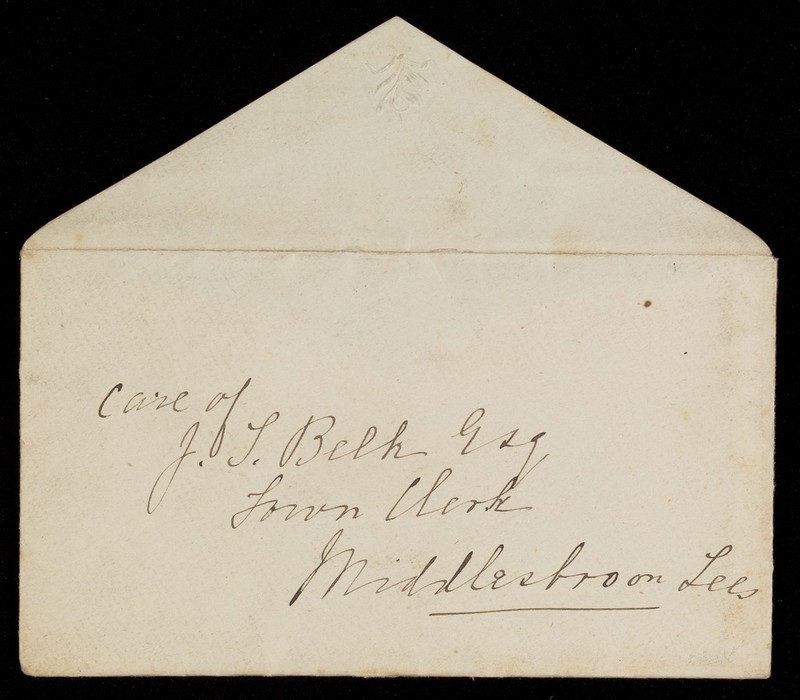 Care of
J. T. Belk Esq
Town Clerk
Middlesbroon Tees